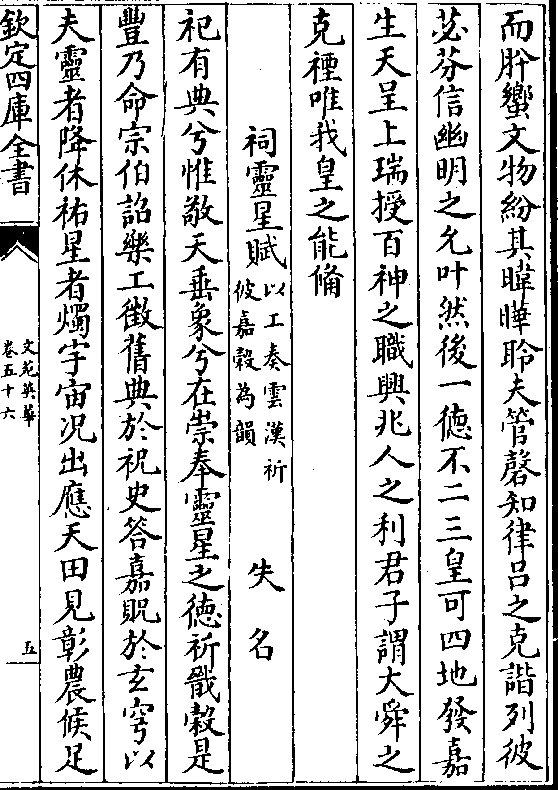 而肸蠁文物紛其暐曄聆夫管磬知律呂之克諧列彼
苾芬信幽明之允叶然後一德不二三皇可四地發嘉
生天呈上瑞授百神之職興兆人之利君子謂大舜之
克禋唯我皇之能備
祠靈星賦以工奏雲漢祈彼嘉穀為韻 失名
祀有典兮惟敬天垂象兮在崇奉靈星之徳祈戩穀是
豐乃命宗伯詔樂工徴舊典於祝史答嘉貺於玄穹以
夫靈者降休祐星者燭宇宙況出應天田見彰農候足
欽定四庫全書
文苑英華
卷五十六
五